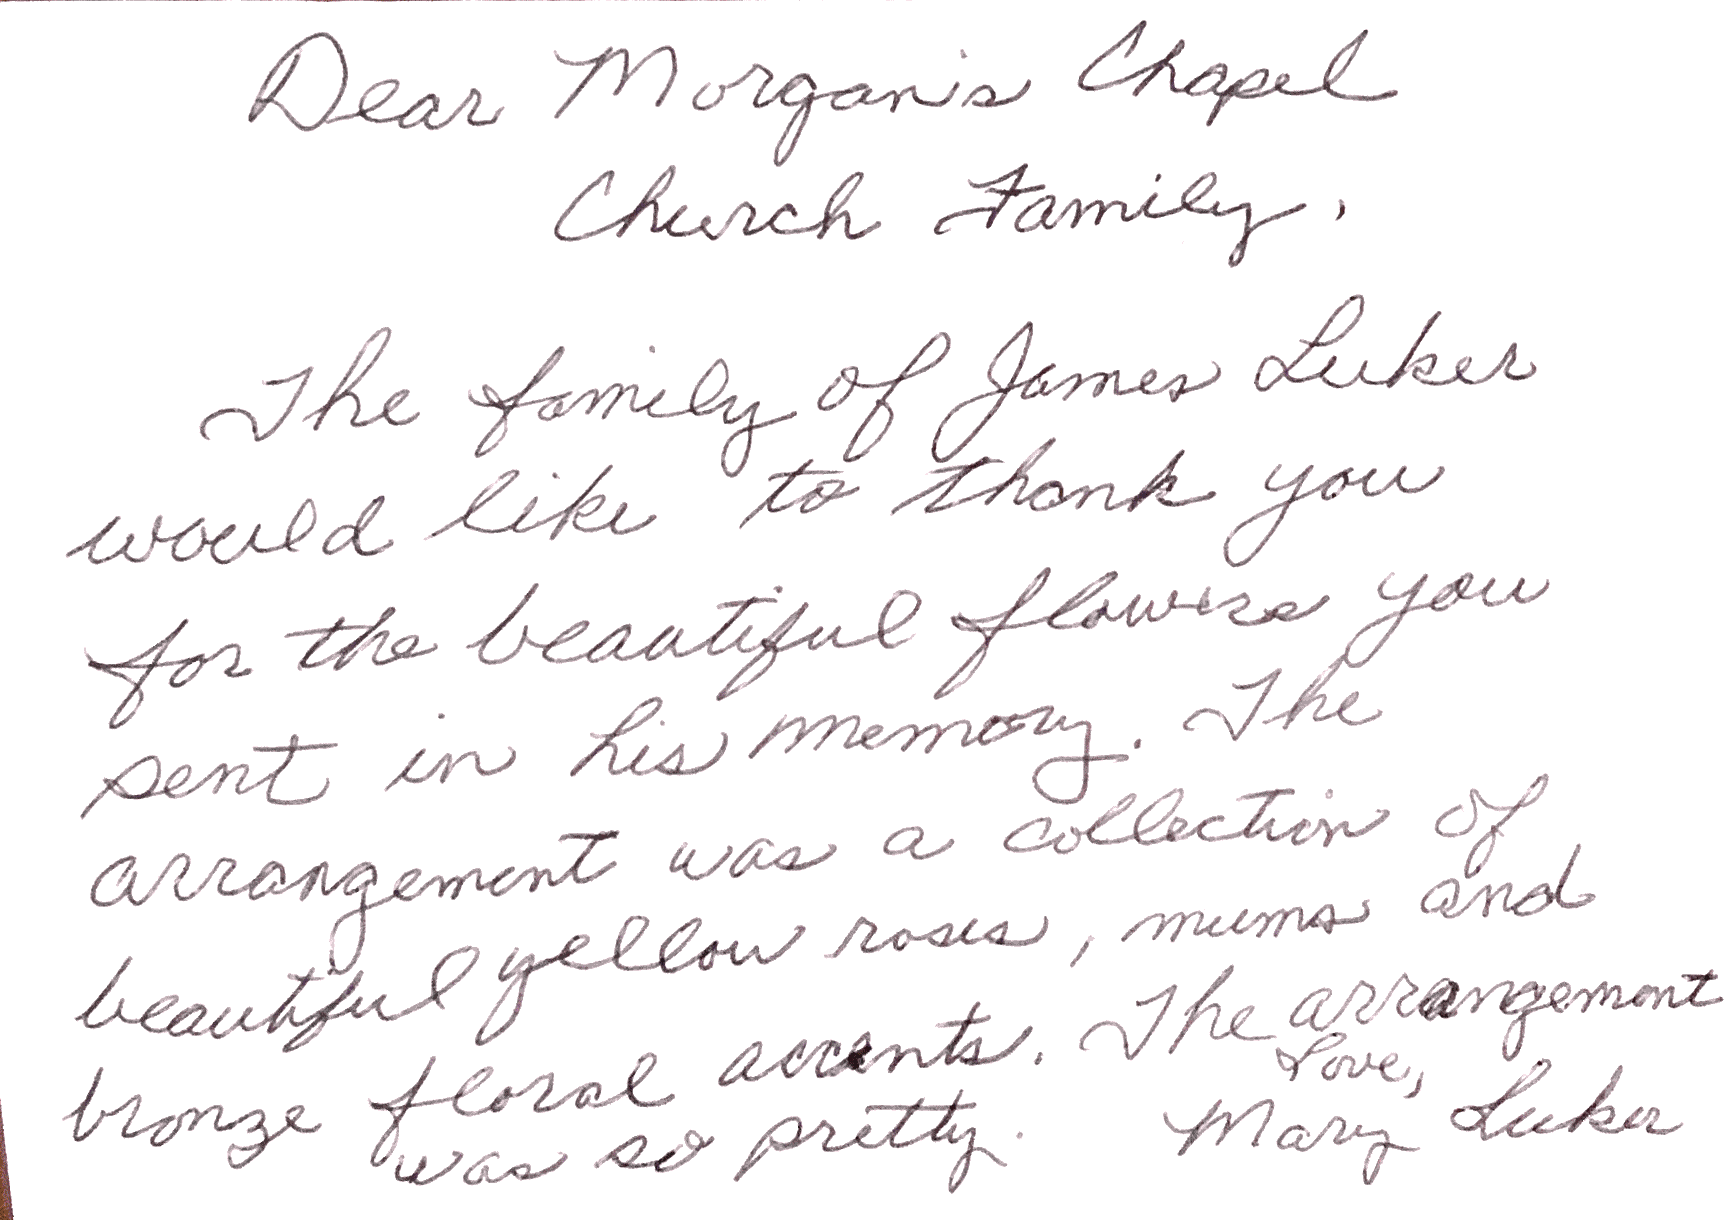 Dear Morgan's Chapel
Church Family,
The family of James Luker
would like to thank you
for the beautiful flowers you
sent in his memory. The
arrangement was a collection of
beautiful yellow roses, mums and
bronze floral accents. The arrangement
was so pretty.
Love,
Mary Luker